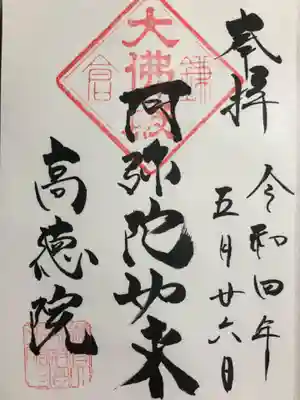 奉拝
令和四年
五月廿六日
大佛殿
鎌
倉
阿弥陀如来
高徳院